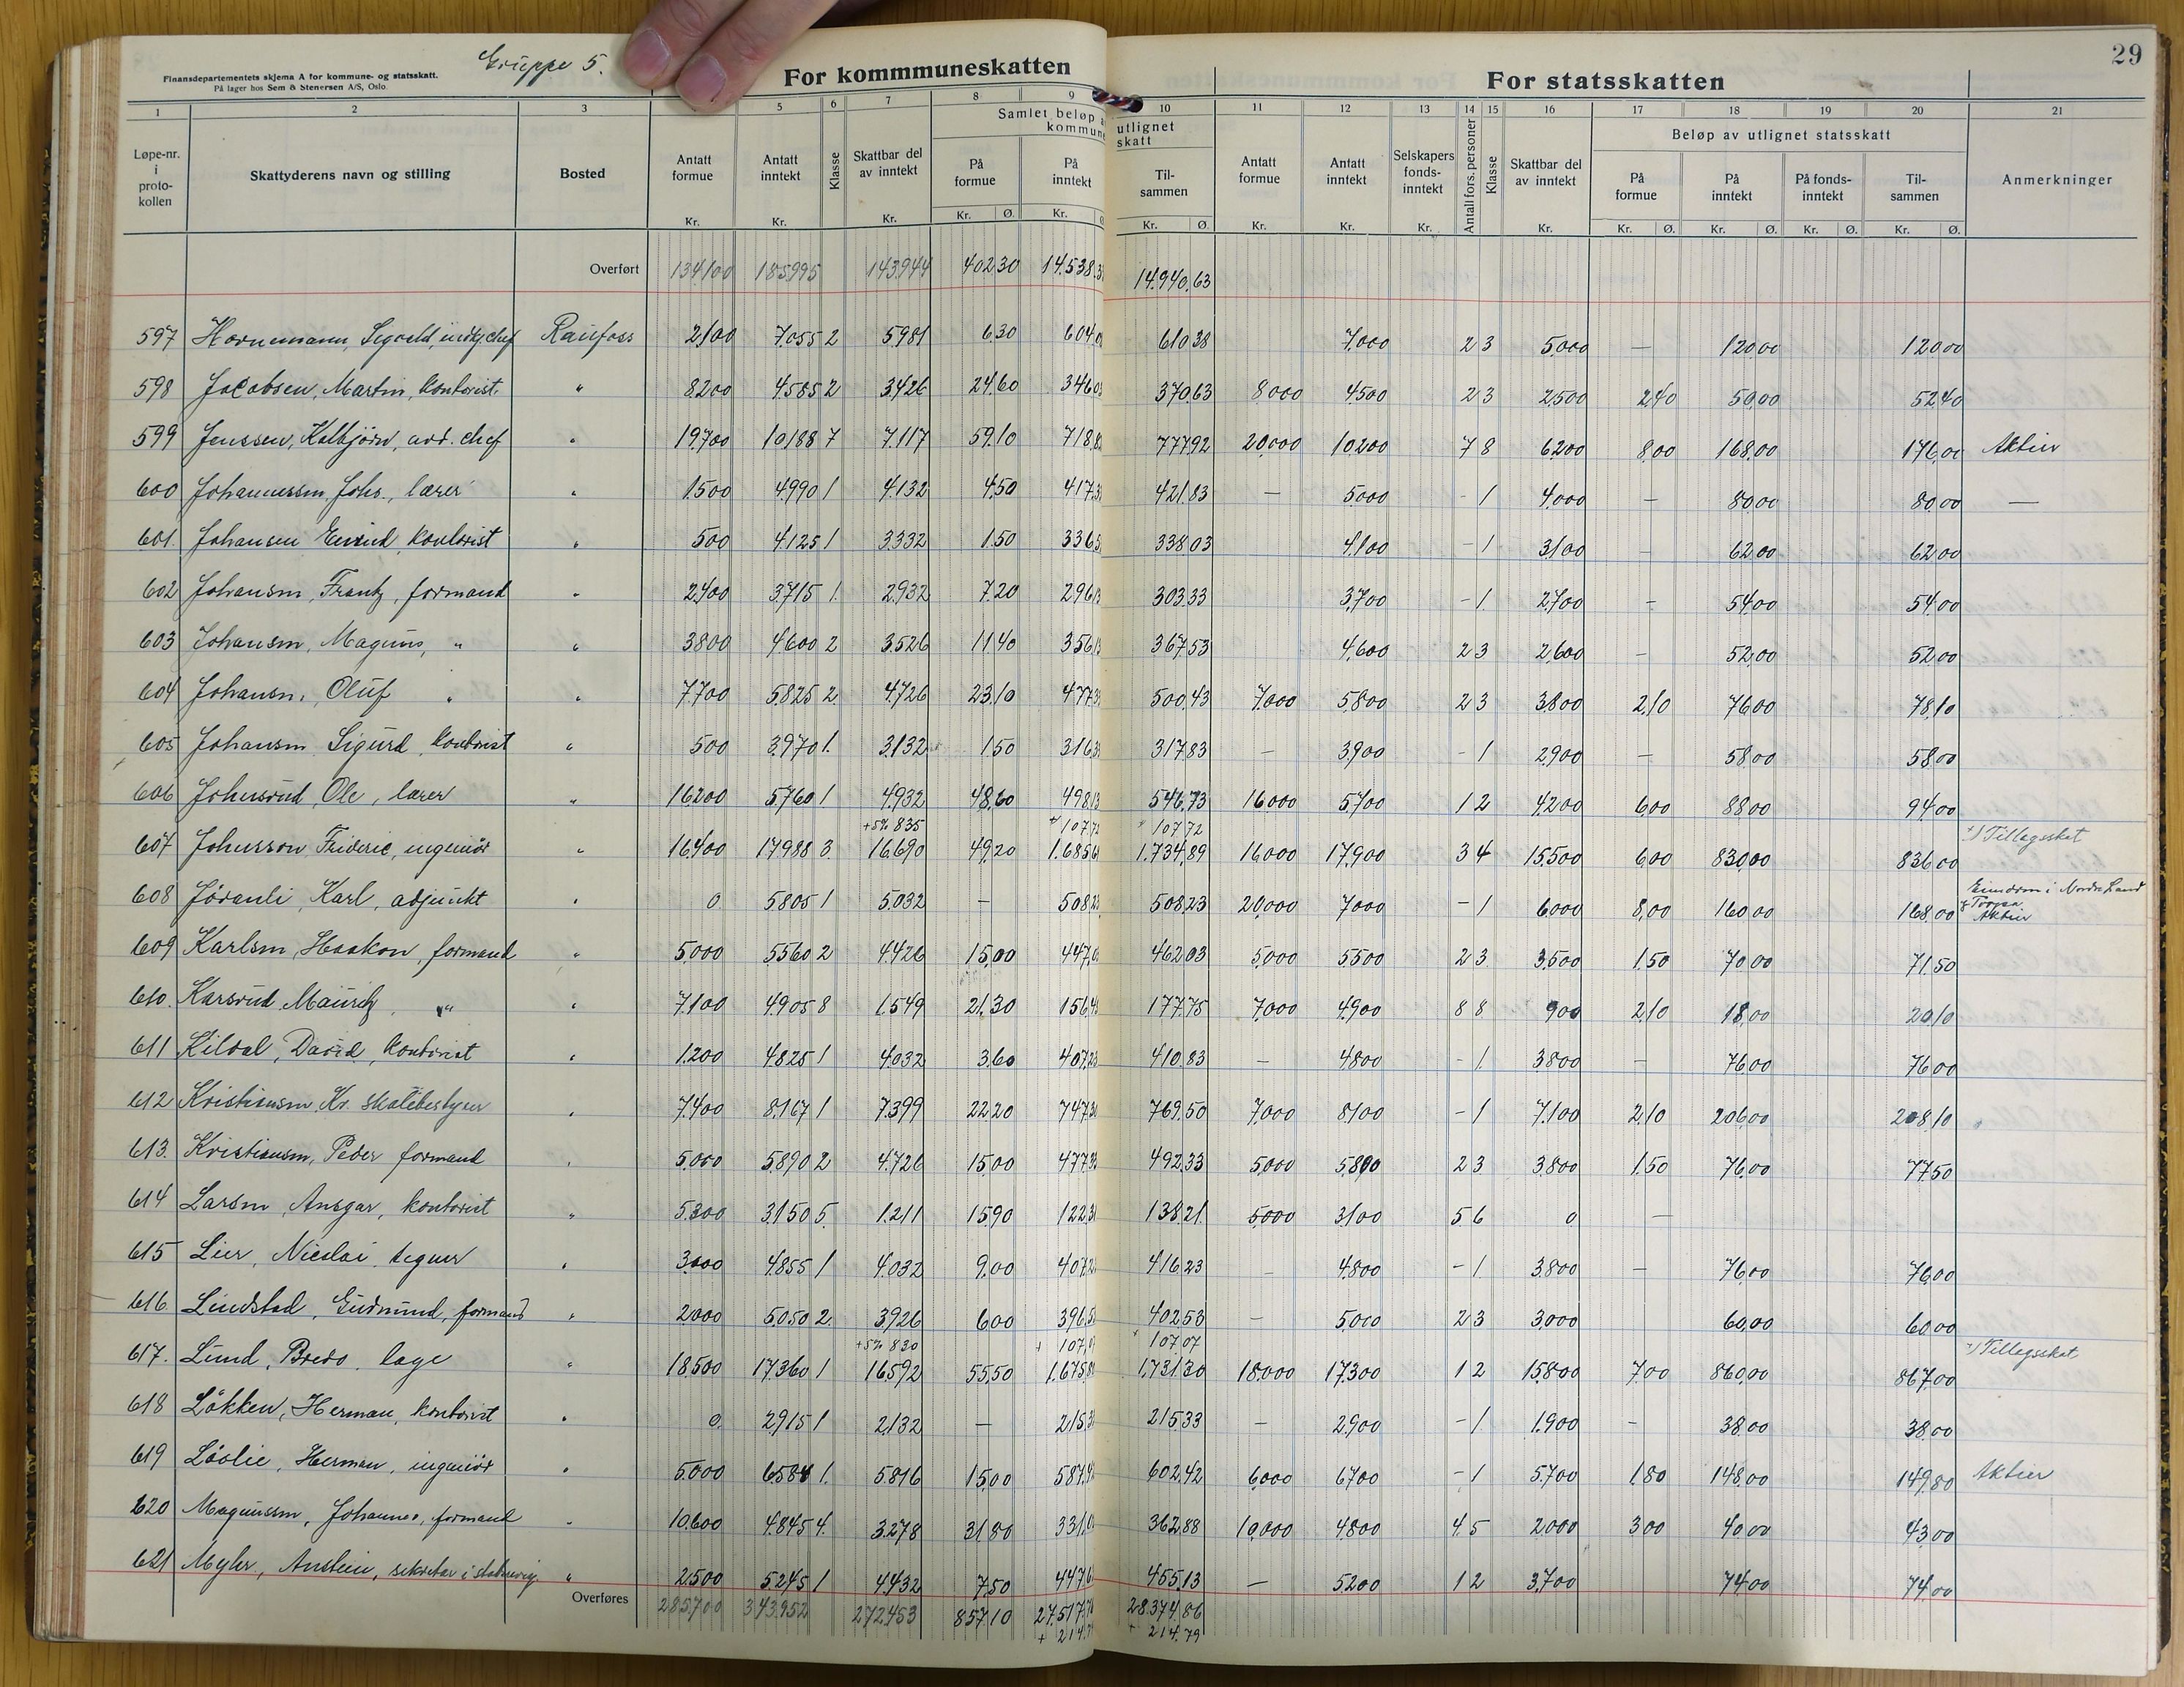 Gruppe 5.
29
Finansdepartementets skjema A for kommune- og statsskatt.
På lager hos Sem & Stenersen A/S, Oslo.
For kommmuneskatten
For statsskatten
1 2 3 5 6 7 8 9 10 11 12 13 14 15 16 17 18 19 20 21
Samlet beløp a utlignet
kommune skatt
Beløp av utlignet statsskatt
Løpe-nr. i proto-kollen
Skattyderens navn og stilling
Bosted
Antatt formue Kr.
Antatt inntekt Kr.
Klasse
Skattbar del av inntekt Kr.
På formue Kr. Ø.
På inntekt Kr.
Til-sammen Kr. Ø.
Antatt formue Kr.
Antatt inntekt Kr.
Selskapers fonds-inntekt Kr.
Antall fors. personer
Klasse
Skattbar del av inntekt Kr.
På formue Kr. Ø.
På inntekt Kr. Ø.
På fonds-inntekt Kr. Ø.
Til-sammen Kr. Ø.
Anmerkninger
Overført 134100 185995 143944 402 30 14.538.3 14.940.63
597 Hornemann, Sigvald, indkj.chef Raufoss 2100 7.055 2 5.981 6.30 604,0 610 38 7.000 2 3 5.000 — 120 00 120 00
598 Jacobsen, Martin, kontorist. " 8.200 4.585 2 3.426 24.60 346 0 370 63 8.000 4.500 2 3 2.500 2.40 50,00 52.40
599 Jenssen, Kolbjørn, avd. chef " 19.700 10.188 7 7.117 59.10 718,8 777.92 20.000 10.200 7 8 6.200 8,00 168,00 176,00 Aktier
600 Johannessen, Johs., lærer " 1.500 4.990 1 4.132 4.50 417,3 421.83 — 5.000 - 1 4.000 — 80,00 80,00 —
601 Johansen Eivind, kontorist " 500 4.125 1 3.332 1.50 336 5 338 03 4.100 - 1 3.100 - 62 00 62 00
602 Johansen, Frantz, formand " 2.400 3.715 1 2.932 7.20 296 1 303 33 3.700 - 1 2.700 - 54,00 54,00
603 Johansen, Magnus, " " 3800 4.600 2 3.526 11 40 356 1 367 53 4.600 2 3 2.600 - 52,00 52 00
604 Johansen, Oluf " " 7.700 5.825 2 4.726 23.10 477 3 500,43 7.000 5.800 2 3 3.800 2.10 76 00 78,10
605 Johansen Sigurd, kontorist " 500 3.970 1 3.132 1 50 316 3 317 83 — 3.900 - 1 2.900 — 58,00 58,00
606 Johnsrud, Ole, lærer " 16.200 5.760 1 4.932 48,60 498,1 546,73 16.000 5.700 1 2 4.200 6,00 88 00 94,00
+5% 835 +107.7 +107.72 +) Tillægsskat
607 Johnsson Frideric, ingeniør " 16.400 17.988 3 16.690 49.20 1.685 6 1.734,89 16.000 17.900 3 4 15.500 6 00 830,00 836,00
608 Jöranli, Karl, adjunkt " 0 5.805 1 5.032 — 508,2 508.23 20.000 7.000 - 1 6.000 8,00 160,00 168,00 Eiendom i Nordre Land & Torpa Aktier
609 Karlsen, Haakon, formand " 5.000 5.560 2 4.426 15,00 447,0 462 03 5.000 5.500 2 3 3.500 1.50 70 00 71 50
610. Karsrud, Mauritz, " " 7.100 4.905 8 1.549 21.30 156,4 177.75 7.000 4.900 8 8 900 2.10 18,00 20,10
611 Kildal, David, kontorist " 1.200 4.825 1 4.032 3.60 407,2 410.83 — 4.800 - 1 3.800 — 76 00 76 00
612 Kristiansen, Kr. skolebestyrer " 7.400 8.167 1 7.399 22.20 747,3 769.50 7.000 8.100 - 1 7.100 2.10 206,00 208,10
613. Kristiansen, Peder formand " 5.000 5.890 2 4.726 15 00 477,3 492.33 5.000 5.800 2 3 3.800 1.50 76,00 77.50
614 Larsen, Ansgar, kontorist " 5.300 3.150 5 1.211 15 90 122,3 138.21 5.000 3.100 5 6 0 —
615 Lier, Nicolai, tegner " 3.000 4.855 1 4.032 9.00 407,2 416.23 - 4.800 - 1 3.800 — 76,00 76,00
616 Lindstad, Gudmund, formand " 2.000 5.050 2 3.926 6 00 396,5 402.53 — 5.000 2 3 3.000 60,00 60,00
+5% 830 + 107,0 + 107 07 +) Tillægsskat
617. Lund, Bredo, læge " 18.500 17.360 1 16.592 55,50 1.675,8 1,731.30 18.000 17.300 1 2 15.800 7 00 860,00 867,00
618 Løkken, Herman, kontorist " 0 2.915 1 2.132 — 215,3 215 33 — 2.900 - 1 1.900 - 38,00 38,00
619 Löslie, Herman, ingeniør " 5.000 6.584 1 5.816 15,00 587,4 602,42 6.000 6.700 - 1 5.700 1 80 148,00 149,80 Aktier
620 Magnussen, Johannes, formand " 10.600 4.845 4 3.278 31 80 331,0 362,88 10.000 4.800 4 5 2.000 3 00 40,00 43,00
621 Myhr, Anstein, " 2.500 5.245 1 4.432 7,50 447,6 455,13 — 5.200 1 2 3.700 74,00 74,00
Overføres 285.700 343.952 272.453 857.10 27.517.7 28.374.86
+ 214.7 + 214.79